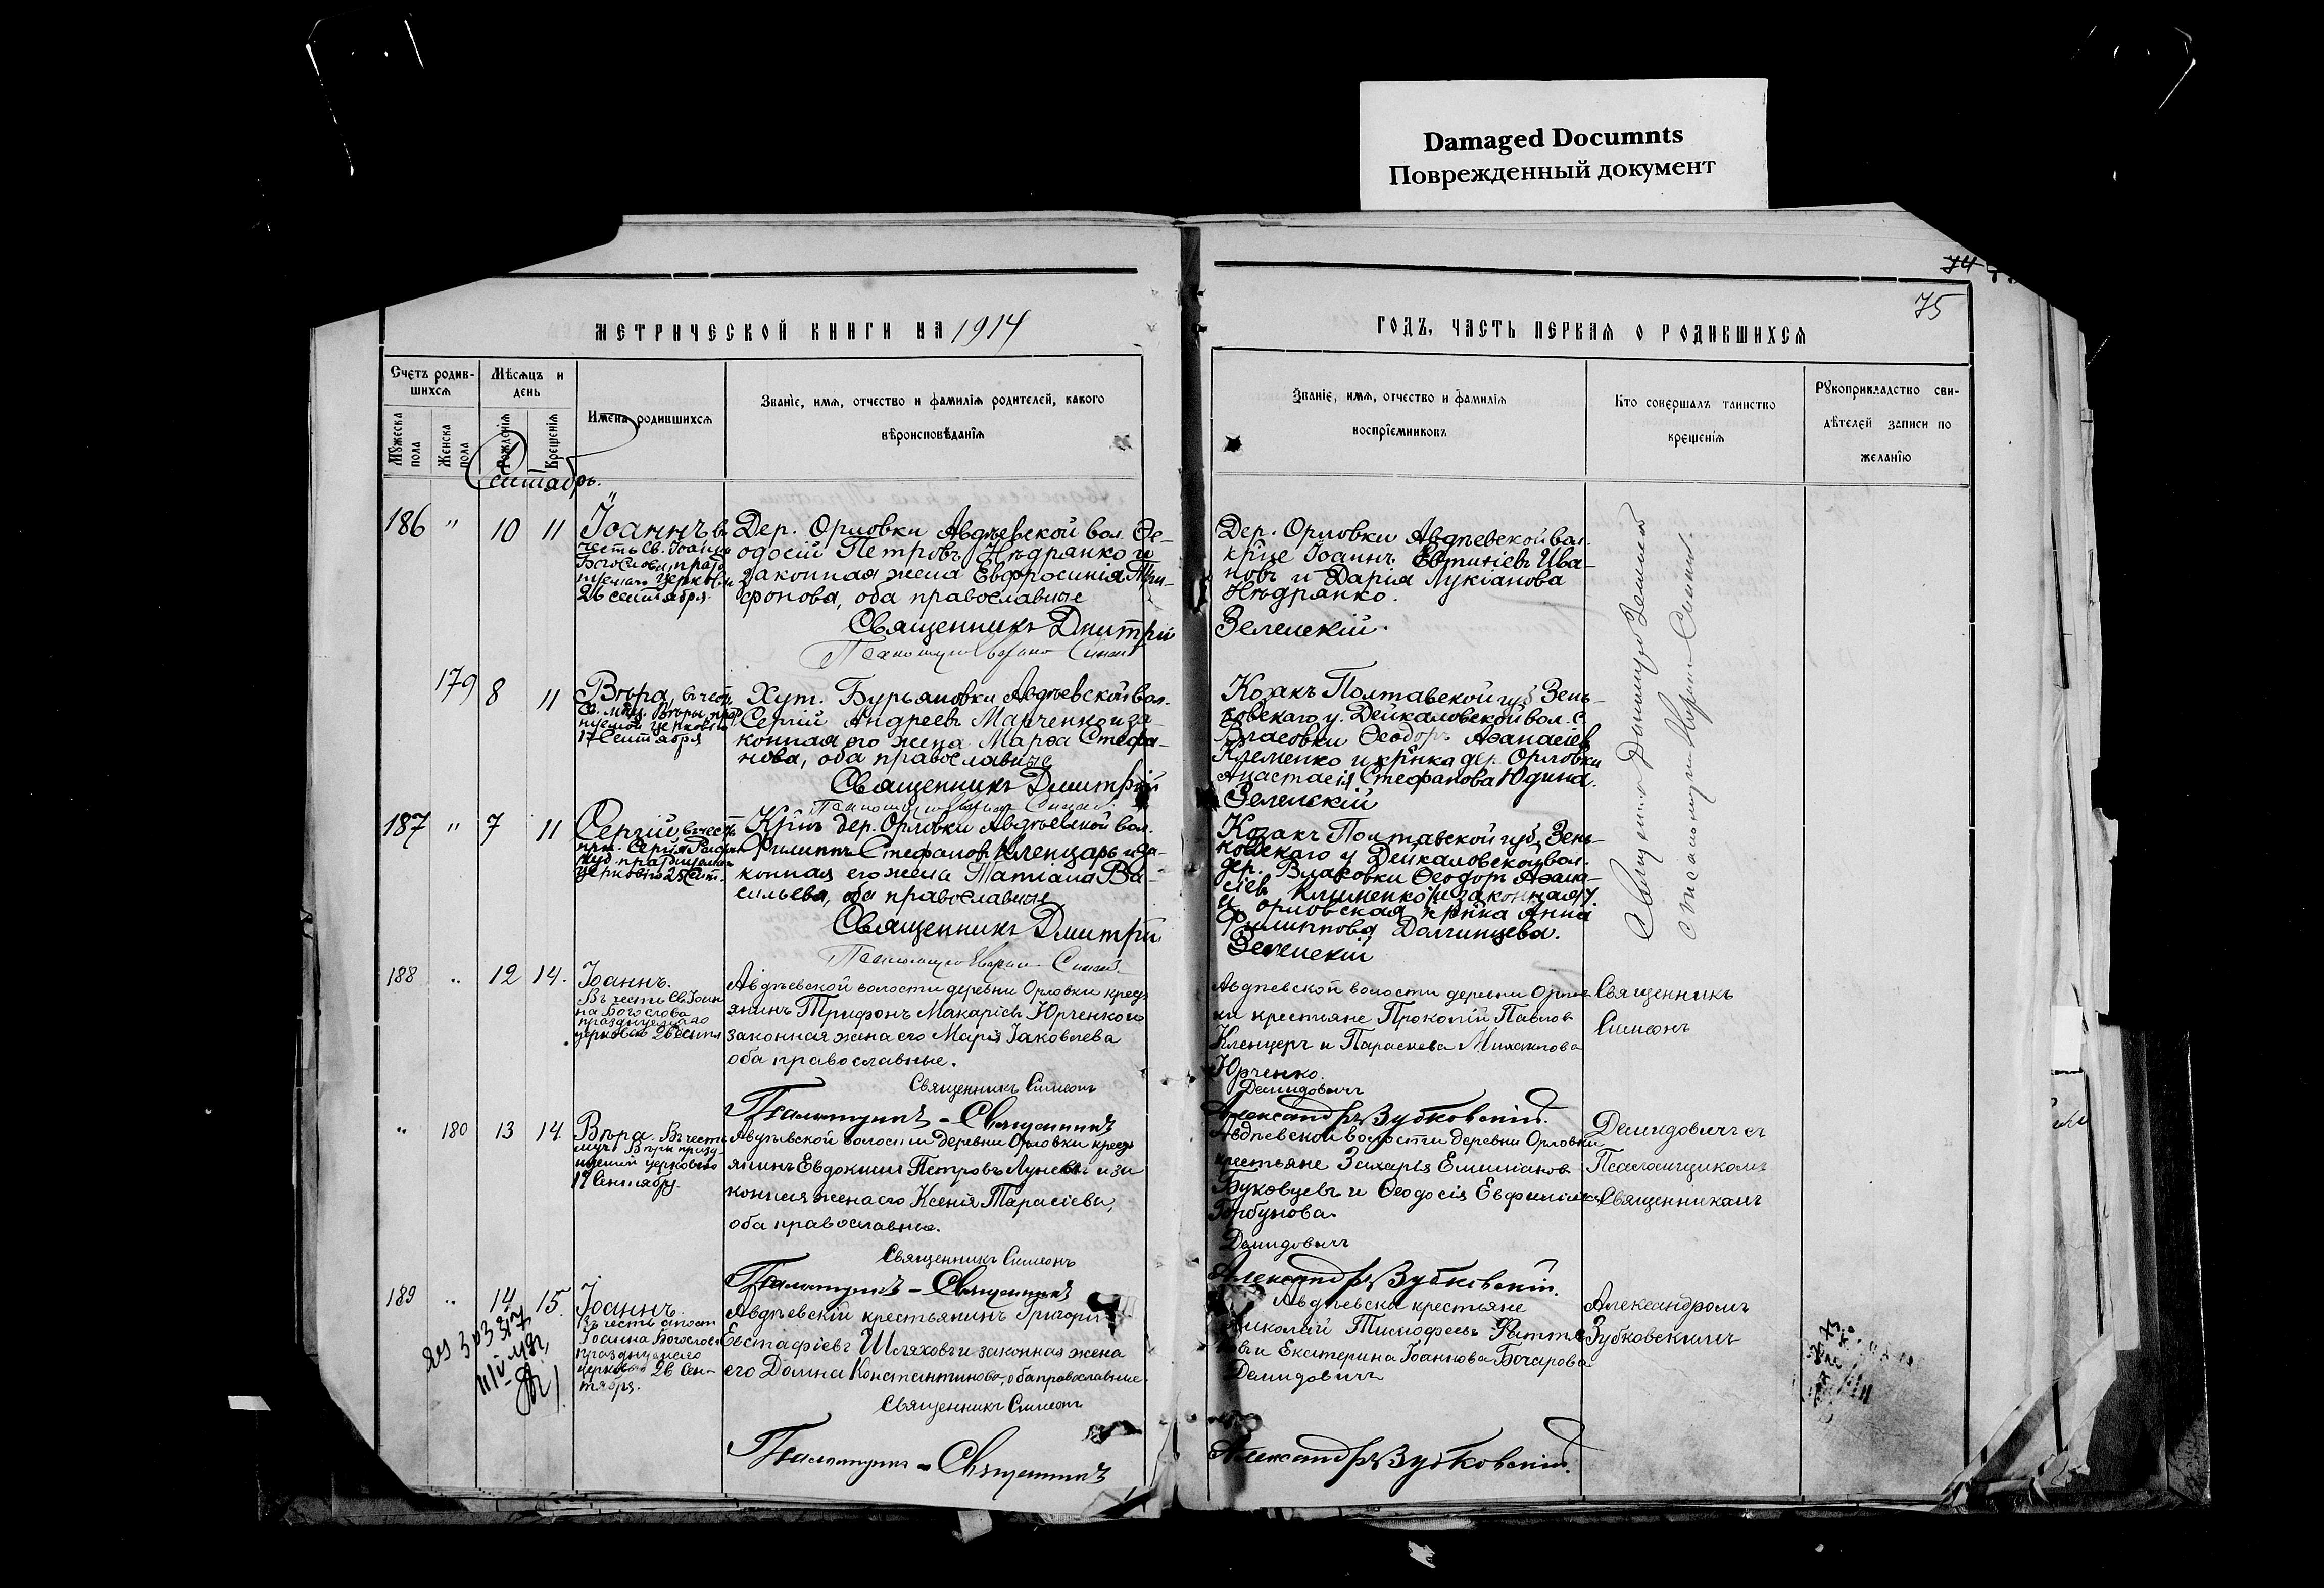 Damaged Documnts
Поврежденный документ
74
75
МЕТРИЧЕСКОЙ КНИГИ НА 1914
ГОДЪ, ЧАСТЬ ПЕРВАЯ О РОДИВШИХСЯ
Счетъ родив-
шихся
Мѣсяцъ и
день
Мужеска
пола
Женска
пола
Рожденія
Крещенія
Имена родившихся
Званіе, имя, отчество и фамилія родителей, какого
вѣроисповѣданія
Званіе, имя, отчество и фамилія
воспріемниковъ
Кто совершалъ таинство
крещенія
Рукоприкладство сви-
дѣтелей записи по
желанію
Сентябрь.
186 " 10 11
Іоаннъ въ
честь Св. Іоанна
Богослова, празд
нуемаго церковью
26 сентября.
Дер. Орловки Авдѣевской вол. Ѳе-
одосій Петровъ Нѣдрянко и
законная жена Евфросинія Три-
фонова, оба православные
Священникъ Дмитрій
Дер. Орловки Авдѣевской вол.
кр҃не Іоаннъ Евтихіевъ Ива-
новъ и Дарія Лукіанова
Нѣдрянко.
Зеленскій.
179 8 11
Вѣра, въ честь
Св. мчц. Вѣры, праз
нуемой церковію
17 Сентября
Хут. Бурьяновки Авдѣевской вол.
Сергій Андреевъ Марченко и за-
конная его жена Марѳа Стефа-
нова, оба православные
Священникъ Дмитрій
Козакъ Полтавской губ. Зень-
ковскаго у. Дейкаловской вол. с.
Власовки Ѳеодоръ Аѳанасіев
Клеменко и кр҃нка дер. Орловки
Анастасія Стефанова Юдина.
Зеленскій
187 " 7 11
Сергій въ честь
прп. Сергія Радон
празднуемаго
церковію 25 Сент.
Кр҃нъ дер. Орловки Авдѣевской вол.
Филиппъ Стефановъ Кленцарь и за-
конная его жена Татіана Ва-
сильева, оба православные
Священникъ Дмитрій
Козакъ Полтавской губ. Зень-
ковскаго у Дейкаловской вол.
дер. Власовки Ѳеодоръ Аѳана-
сіев Клименко и
и орловская кр҃нка Анна
Филиппова Долгинцева.
Зеленскій
188 " 12 14.
Іоаннъ.
Въ честь Св. Іоан
на Богослова
празднуемаго
церковью 26 Сентя
Авдѣевской волости деревни Орловки крест
янинъ Трифонъ Макаріевъ Юрченко и
законная жена его Марія Іаковлева
оба православные.
Священникъ Симеонъ
Псаломщикъ - Священникъ
Авдѣевской волости деревни Орлов
ки крестьяне Прокопій Павлов
Кленцеръ и Параскева Михаилова
Юрченко.
Демидовичъ
Александръ Зубковскій.
Священникъ
Симеонъ
" 180 13 14
Вѣра. Въ честь
муч. Вѣры празд-
нуемой церковью
17 Сентября.
Авдѣевской волости деревни Орловки крест
янинъ Евдокимъ Петровъ Луневъ и за
конная жена его Ксенія Тарасіева,
оба православные.
Священникъ Симеонъ
Псаломщикъ - Священникъ
Авдѣевской волости деревни Орловки
крестьяне Захарія Емиліановъ
Буковцевъ и Ѳеодосія Евфиміева
Горбунова.
Демидовичъ
Александръ Зубковскій.
Демидовичъ съ
Псаломщикомъ
Священникамъ
189 " 14 15.
Іоаннъ.
Въ честь апост
Іоанна Богослова
празднуемаго
церковью 26 Сен-
тября.
Авдѣевскій крестьянинъ Григорій
Евстафіевъ Шляховъ и законная жена
его Домна Константинова, оба православные.
Священникъ Симеонъ
Псаломщикъ - Священникъ
Авдѣевски крестьяне
Николай Тимофеевъ
и Екатерина Іоаннова Бочарова
Демидовичъ
Александръ Зубковскій.
Александромъ
Зубковскимъ